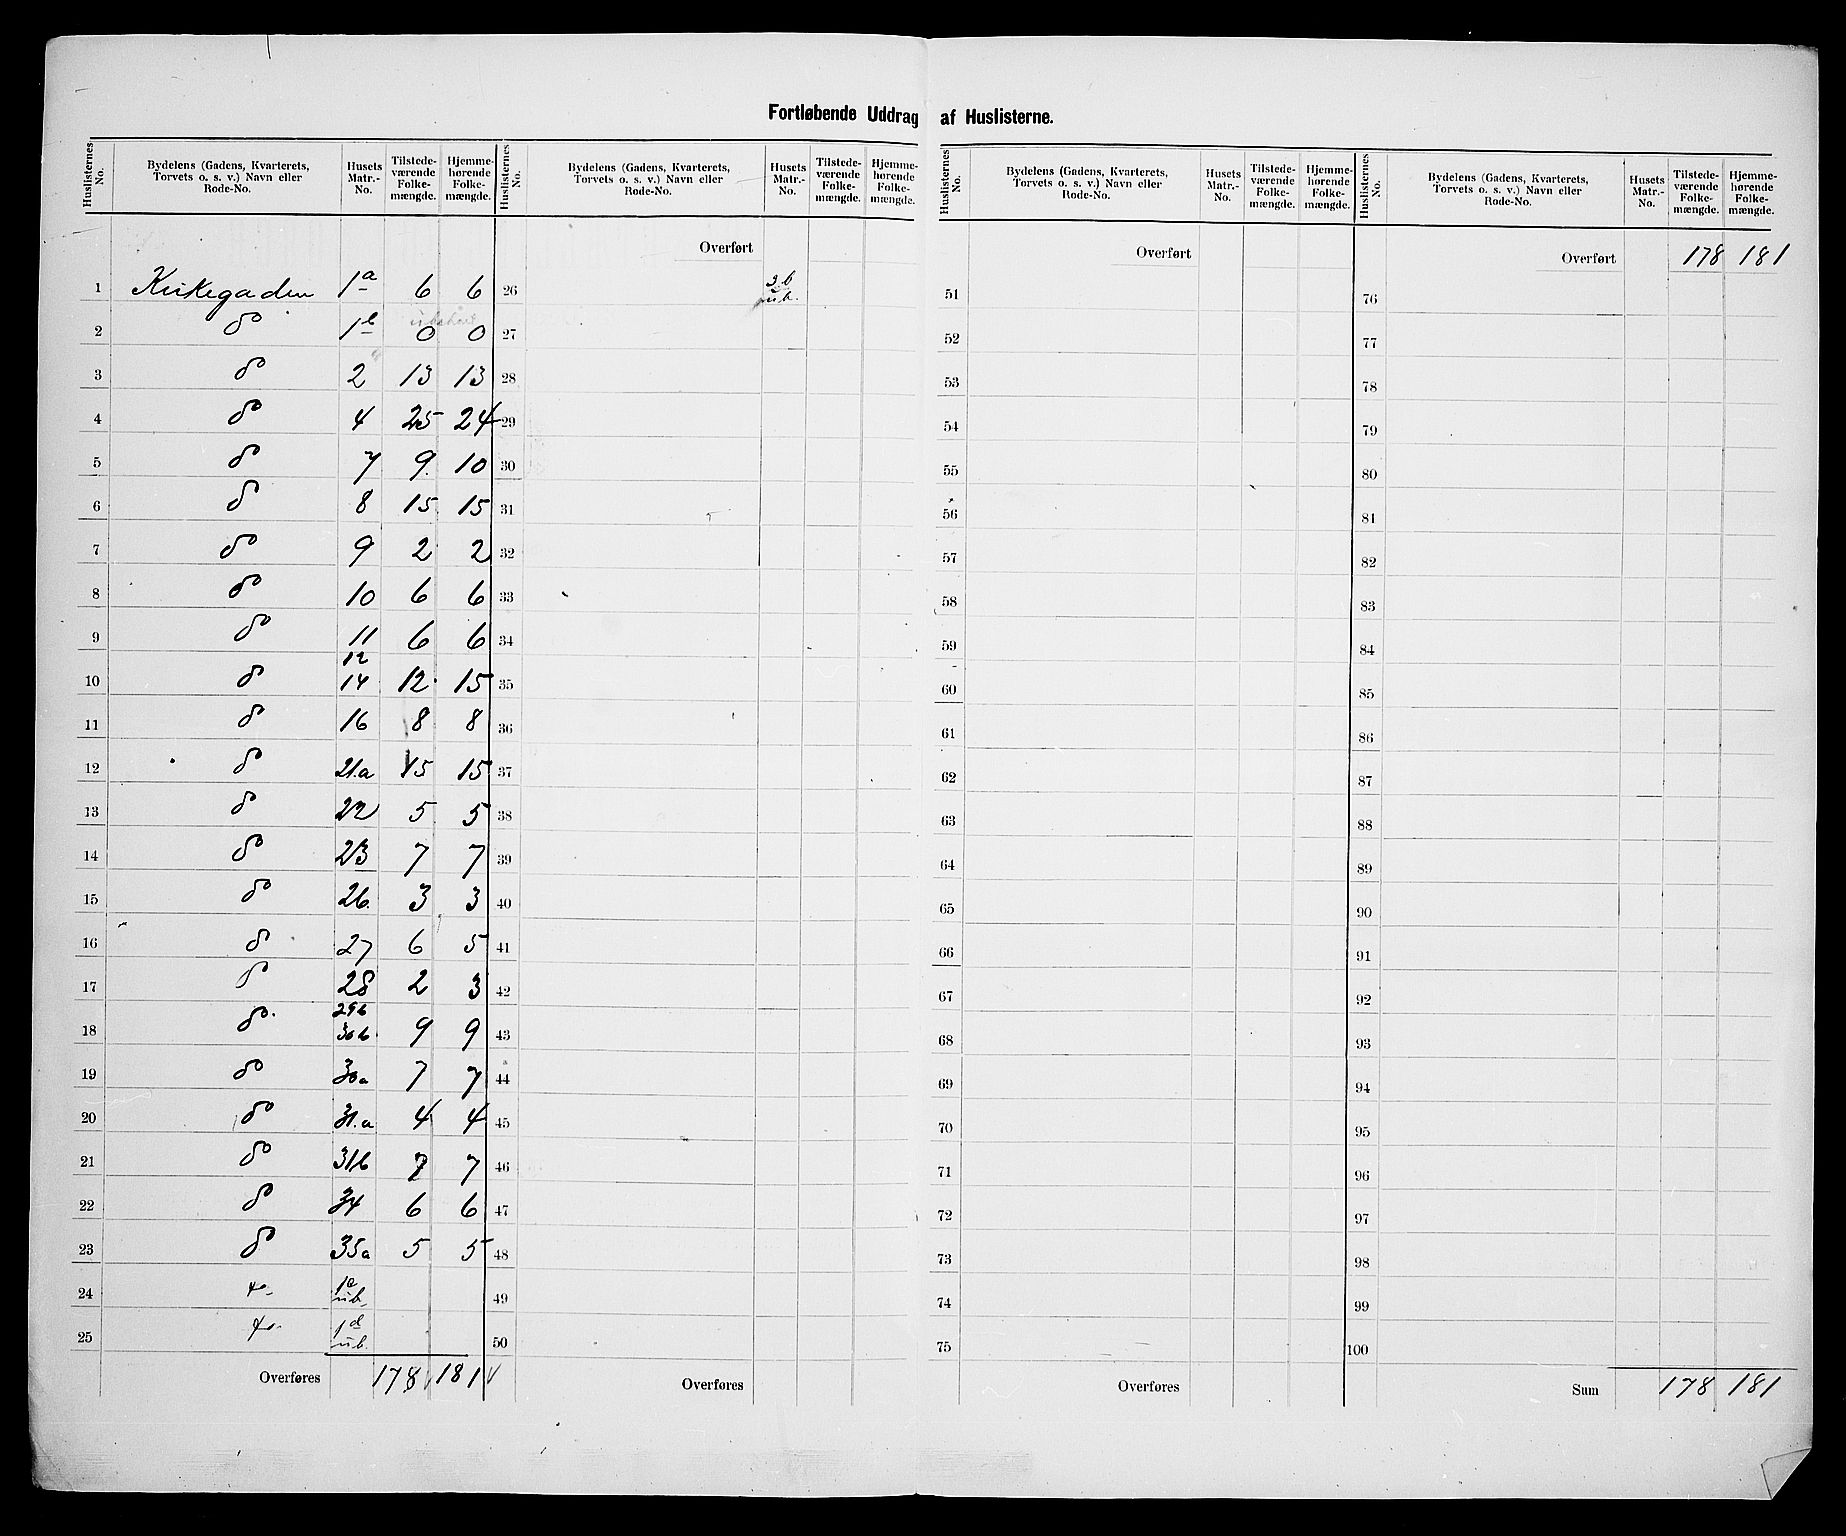 Fortløbende Uddrag af Huslisterne.
Huslisternes No. | Bydelens (Gadens, Kvarterets, Torvets o. s. v.) Navn eller Rode-No. | Husets Matr.-No. | Tilstedeværende Folkemængde. | Hjemmehørende Folkemængde.
1 Kirkegaden 1a 6 6
2 do 1b ubeboet 0 0
3 do 2 13 13
4 do 4 25 24
5 do 7 9 10
6 do 8 15 15
7 do 9 2 2
8 do 10 6 6
9 do 11 6 6
10 do 12 14 12 15
11 do 16 8 8
12 do 21.a 15 15
13 do 22 5 5
14 do 23 7 7
15 do 26. 3 3
16 do 27 6 5
17 do 28 2 3
18 do 29b 30b. 9 9
19 do 30a 7 7
20 do 31.a 4 4
21 do 31b 7 7
22 do 34 6 6
23 do 35a 5 5
24 do ub.
25 do 1d ub.
Overføres 178 181
Huslisternes No. | Bydelens (Gadens, Kvarterets, Torvets o. s. v.) Navn eller Rode-No. | Husets Matr.-No. | Tilstedeværende Folkemængde. | Hjemmehørende Folkemængde.
Overført
26 ub.
27
28
29
30
31
32
33
34
35
36
37
38
39
40
41
42
43
44
45
46
47
48
49
50
Overføres
Huslisternes No. | Bydelens (Gadens, Kvarterets, Torvets o. s. v.) Navn eller Rode-No. | Husets Matr.-No. | Tilstedeværende Folkemængde. | Hjemmehørende Folkemængde.
Overført
51
52
53
54
55
56
57
58
59
60
61
62
63
64
65
66
67
68
69
70
71
72
73
74
75
Overføres
Huslisternes No. | Bydelens (Gadens, Kvarterets, Torvets o. s. v.) Navn eller Rode-No. | Husets Matr.-No. | Tilstedeværende Folkemængde. | Hjemmehørende Folkemængde.
Overført 178 181
76
77
78
79
80
81
82
83
84
85
86
87
88
89
90
91
92
93
94
95
96
97
98
99
100
Sum 178 181